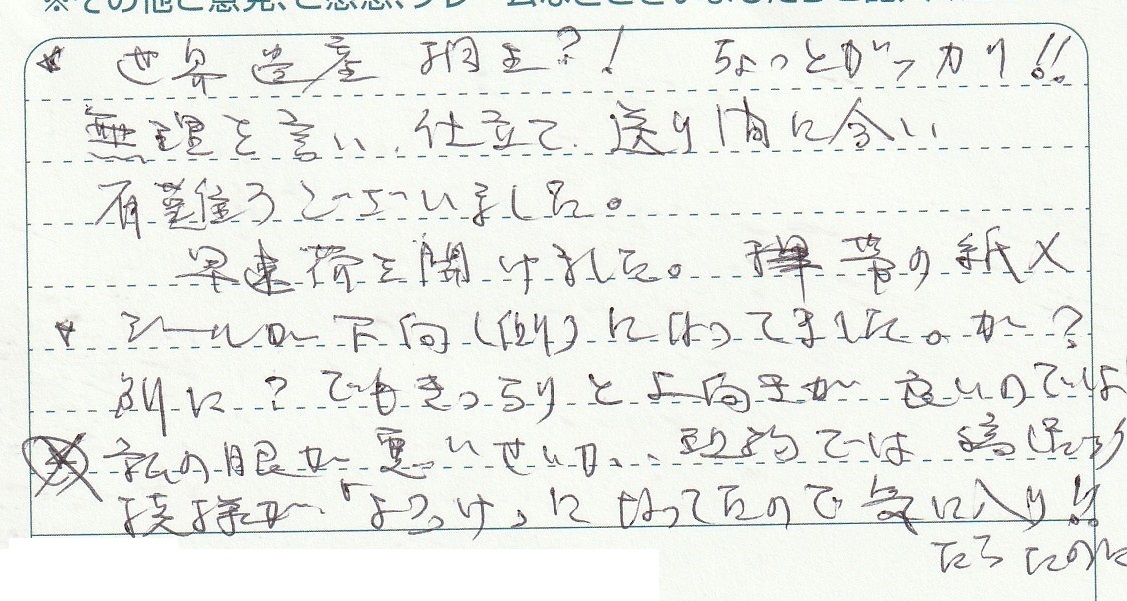 ※その他ご意見、ご感想、クレームなどございましたらご記入
* 世界遺産 ?! ちょっとガッカリ!!
無理を言い、仕立て、送り間に合い
有難うございました。
早速荷を開けました。 帯の紙
* シールが下向(側)になってました。が?
別に? でもきっちりと上向きが良いのでは
私の眼が悪いせいか、、 では
模様が「よろけ」になってたので気に入り!!